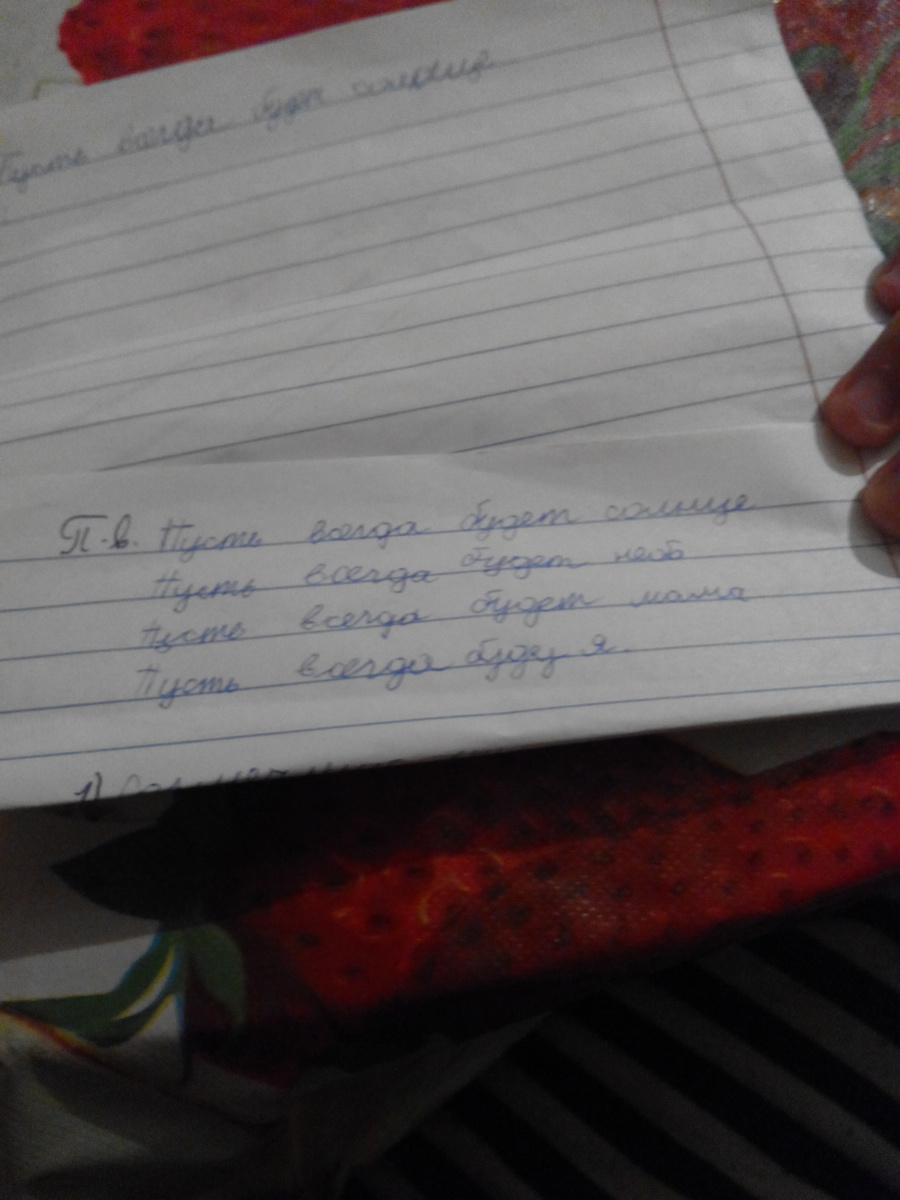 Пусть всегда будет солнце
П-в. Пусть всегда будет солнце
Пусть всегда будет небо
Пусть всегда будет мама
Пусть всегда буду я.
1)